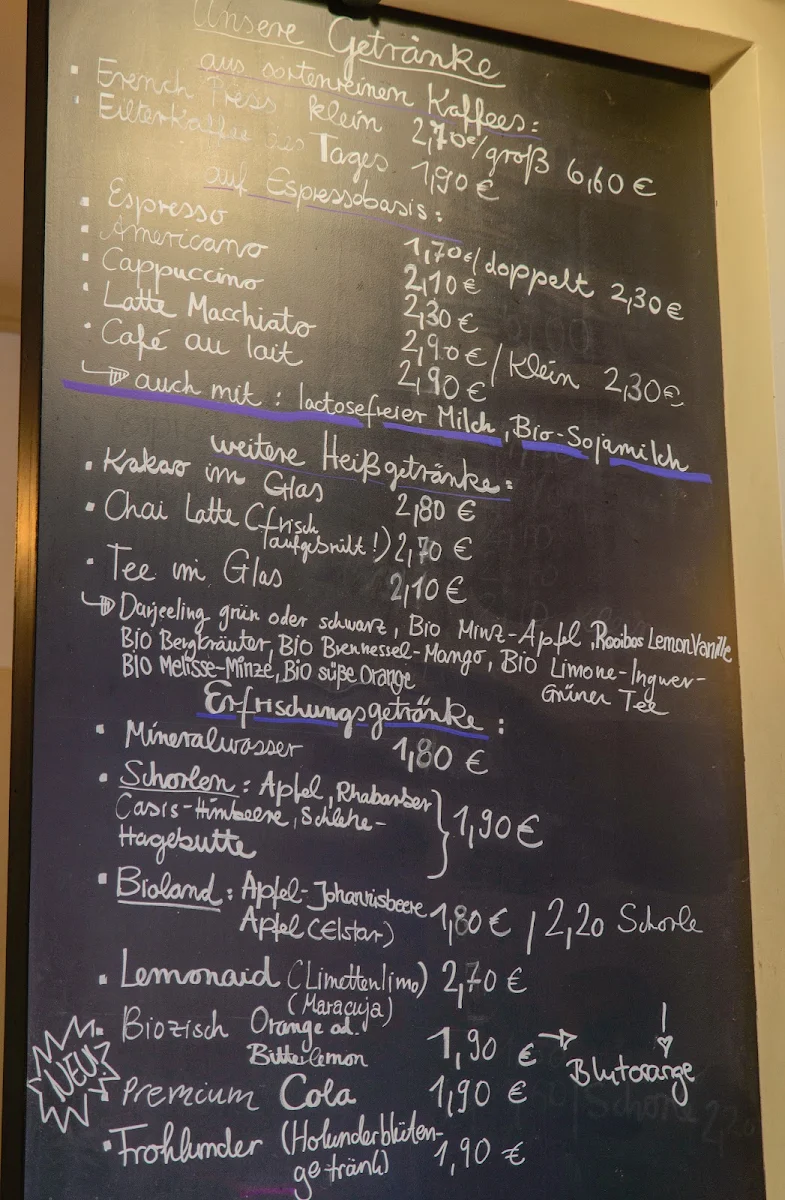 Unsere Getränke
aus sortenreinen Kaffees:
· French Press klein 2,70€/groß 6,60 €
· Filterkaffee des Tages 1,90 €
auf Espressobasis:
· Espresso 1,70€/doppelt 2,30 €
· Americano 2,10 €
· Cappuccino 2,30 €
· Latte Macchiato 2,90 €/Klein 2,30€
· Café au lait 2,90 €
auch mit: lactosefreier Milch, Bio-Sojamilch
weitere Heißgetränke:
· Kakao im Glas 2,80 €
· Chai Latte (frisch
aufgebrüht!) 2,70 €
· Tee im Glas 2,10 €
Darjeeling grün oder schwarz, Bio Minz-Apfel, Rooibos Lemon Vanille
Bio Bergkräuter, Bio Brennessel-Mango, Bio Limone-Ingwer-
Grüner Tee
BIO Melisse-Minze, Bio süße Orange
Erfrischungsgetränke:
· Mineralwasser 1,80 €
· Schorlen: Apfel, Rhabarber
Casis-Himbeere, Schlehe-
Hagebutte } 1,90 €
· Bioland: Apfel-Johannisbeere
Apfel (Elstar) 1,80 € / 2,20 Schorle
· Lemonaid (Limettenlimo) 2,70 €
(Maracuja)
· Biozisch Orange od.
Bitterlemon 1,90 € → Blutorange
NEU!
· Premium Cola 1,90 €
· Frohlunder (Holunderblüten-
getränk) 1,90 €